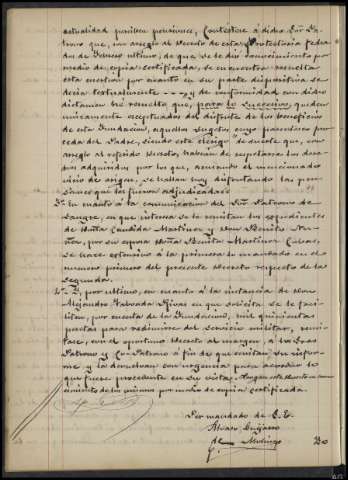 actualidad perciben pensiones, Contéstese á dicho Sor. Pa-
trono que, con arreglo al Decreto de esta Protectoria fecha
dos de Febrero ultimo, de que se le dió conocimiento por
medio de copia certificada, se encuentra resuelta
esta cuestion por cuanto en su parte dispositiva se
decia textualmente - - -, y de conformidad con dicho
dictamen he resuelto que, para lo sucesivo, queden
unicamente exceptuados del disfrute de los beneficios
de esta Fundacion, aquellos sugetos cuyo parentesco pro-
ceda del Padre, siendo este clerigo" de suerte que, con
arreglo al referido Decreto, tratan de respetarse los dere-
chos adquiridos por los que, teniendo el mencionado
vicio de origen, se hallan hoy disfrutando las pen-
siones que les fueron adjudicadas
En cuanto á la comunicacion del Sor. Patrono de
Sangre, en que interesa se le remitan los expedientes
de Doña Candida Martinez y Don Benito
por su esposa Doña Benita Martinez
se hace extensivo á la primera lo mandado en el
numero primero del presente Decreto respecto de la
Segunda.
Y, por ultimo, en cuanto á la instancia de Don
Alejandro Taboada Rivas en que solicita se le faci-
liten, por cuenta de la Fundacion, mil quinientas
pesetas para redimirse del servicio militar, remi-
tase, con el oportuno Decreto al margen, á los Sres
Patrono y Co-Patrono á fin de que emitan su infor-
me y la devuelvan con urgencia para acordar lo
que fuere procedente en su vista. Hagase este Decreto en cono-
cimiento de los mismos por medio de copia certificada.
Por mandado de S. E.
Alvaro
de